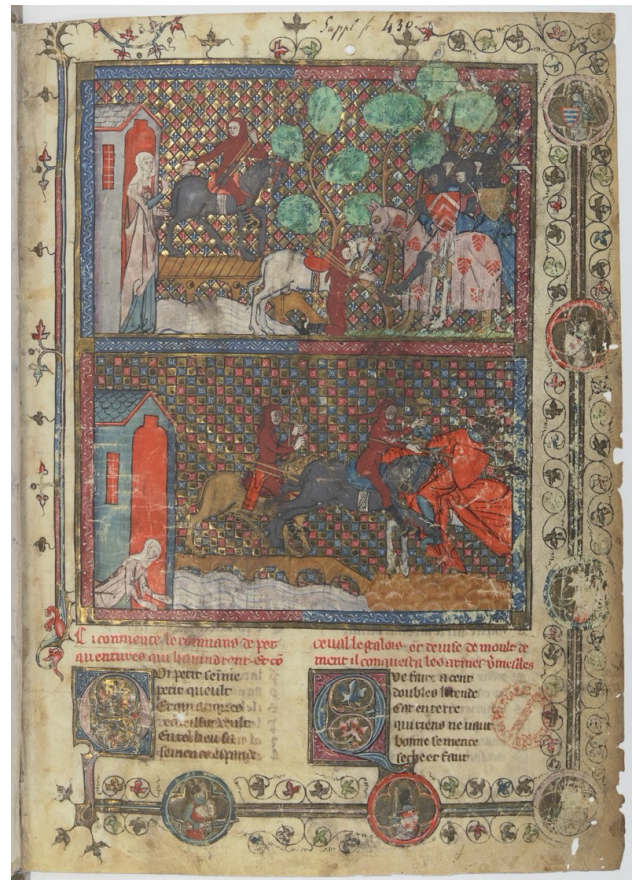 Suppl fr 430
Ci commence le rommans de per
ceval le galois. et devise de moult de
aventures qui li avindrent. Et co
ment il conquesta les armes vermeilles
QVi petit seime
petit queult
Et qui auques
recueillir veult
En tel lieu sa
semence espande
QVe fruit a cent
doubles li rende
Car en terre
qui riens ne vaut
bonne semence
seche et faut